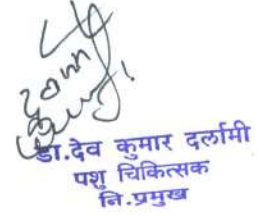 डा.देव कुमार दर्लामी
पशु चिकित्सक
नि.प्रमुख